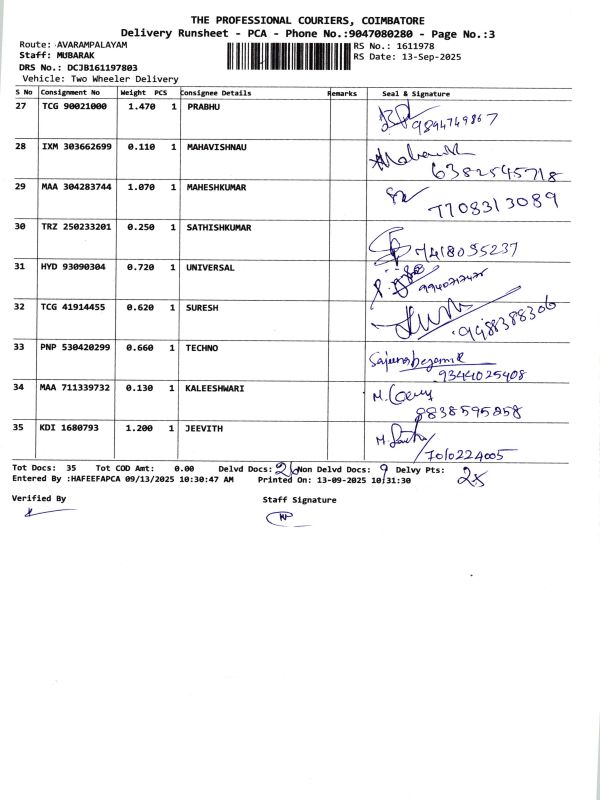 THE PROFESSIONAL COURIERS, COIMBATORE
Delivery Runsheet - PCA - Phone No.:9047080280 - Page No.:3
Route: AVARAMPALAYAM RS No.: 1611978
Staff: MUBARAK RS Date: 13-Sep-2025
DRS No.: DCJB161197803
Vehicle: Two Wheeler Delivery
S No Consignment No Weight PCS Consignee Details Remarks Seal & Signature
27 TCG 90021000 1.470 1 PRABHU
9894749867
28 IXM 303662699 0.110 1 MAHAVISHNAU
6382545718
29 MAA 304283744 1.070 1 MAHESHKUMAR
7708313089
30 TRZ 250233201 0.250 1 SATHISHKUMAR
7418095237
31 HYD 93090304 0.720 1 UNIVERSAL
32 TCG 41914455 0.620 1 SURESH
9488388306
33 PNP 530420299 0.660 1 TECHNO
9344025408
34 MAA 711339732 0.130 1 KALEESHWARI
8838595858
35 KDI 1680793 1.200 1 JEEVITH
7010224005
Tot Docs: 35 Tot COD Amt: 0.00 Delvd Docs: 26 Non Delvd Docs: 9 Delvy Pts: 25
Entered By :HAFEEFAPCA 09/13/2025 10:30:47 AM Printed On: 13-09-2025 10:31:30
Verified By Staff Signature